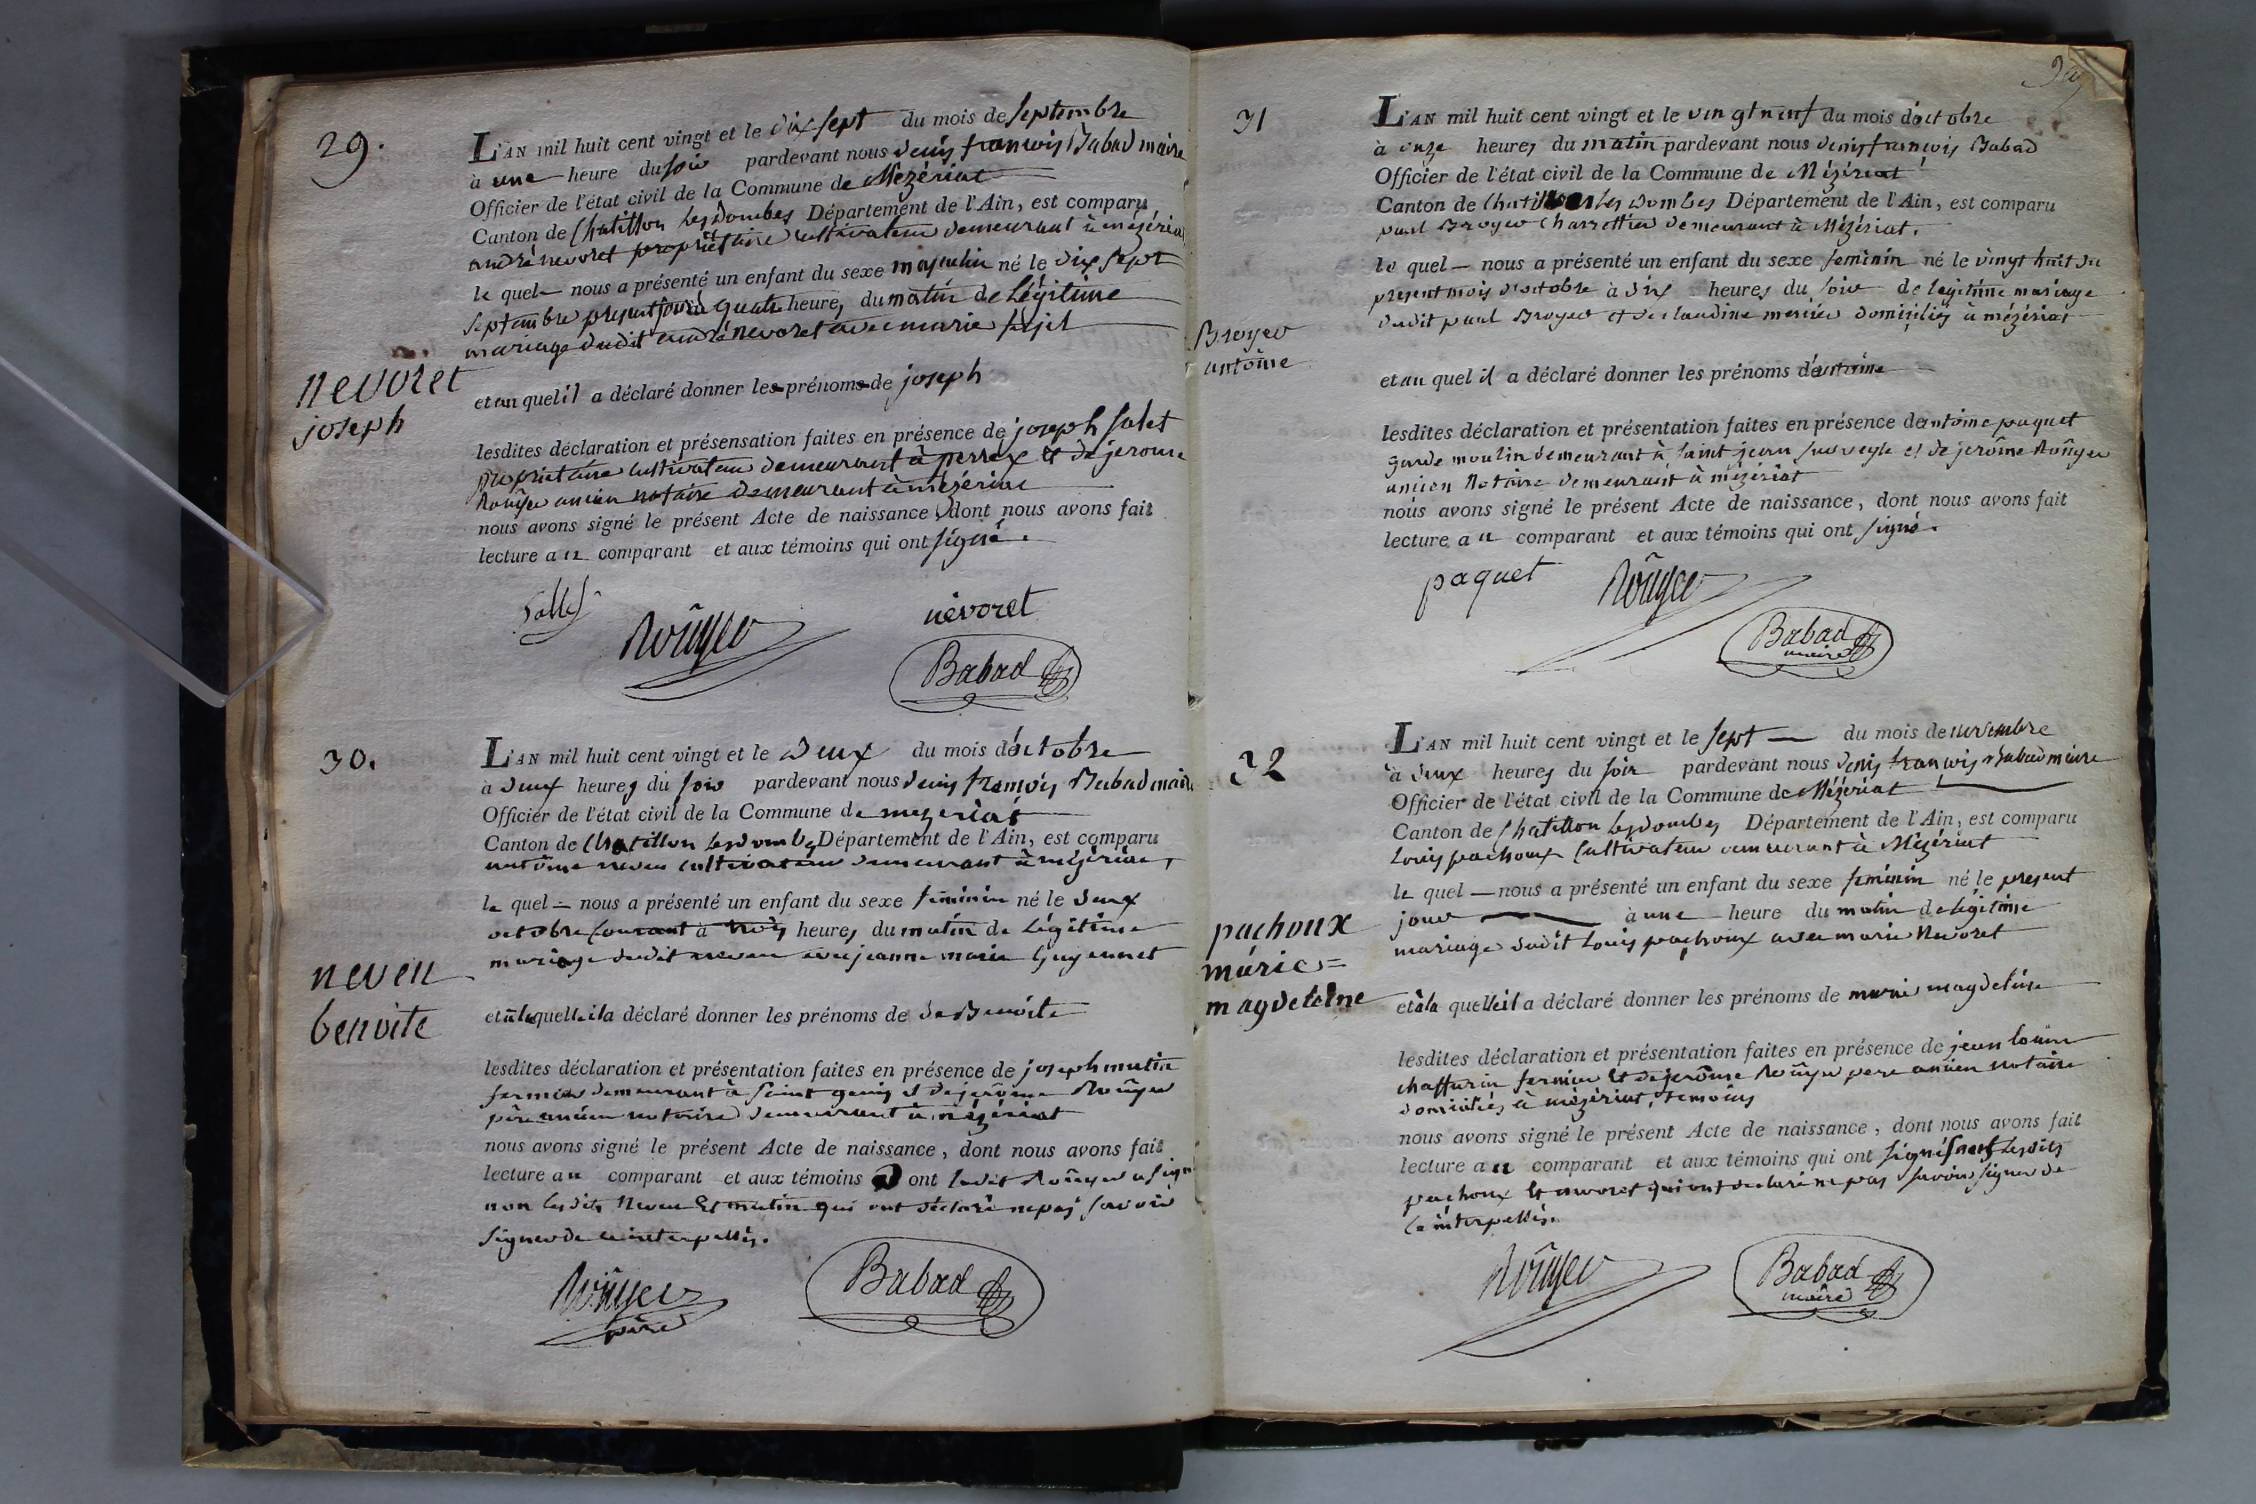 29.
L'AN mil huit cent vingt et le dix sept du mois de septembre
à une heure du soir pardevant nous denis françois Babad maire
Officier de l'état civil de la Commune de Mézériat
Canton de Chatillon les dombes Département de l'Ain, est comparu
andré nevoret propriétaire cultivateur demeurant à mézériat
le quel nous a présenté un enfant du sexe masculin né le dix sept
septembre present jour à quatre heures du matin de Légitime
mariage dudit andré nevoret avec marie
nevoret
joseph
et au quel il a déclaré donner les prénoms de joseph
lesdites déclaration et présensation faites en présence de joseph salet
propriétaire cultivateur demeurant à perrex et de jerome
Roüyer ancien notaire demeurant à mézériat
nous avons signé le présent Acte de naissance, dont nous avons fait
lecture au comparant et aux témoins qui ont signé.
Roüyer
nevoret
Babad
30.
L'AN mil huit cent vingt et le deux du mois d'octobre
à deux heures du soir pardevant nous denis françois Babad maire
Officier de l'état civil de la Commune de mezeriat
Canton de Chatillon les dombes Département de l'Ain, est comparu
antoine neveu cultivateur demeurant à mézériat,
le quel nous a présenté un enfant du sexe feminin né le deux
octobre courant à trois heures du matin de Légitime
mariage dudit neveu avec jeanne marie Guyennet
neveu
benoite
et à la quelle il a déclaré donner les prénoms de de Benoite
lesdites déclaration et présentation faites en présence de joseph mutin
fermier demeurant à saint genis et de jerôme Roüyer
père ancien notaire demeurant à mézériat
nous avons signé le présent Acte de naissance, dont nous avons fait
lecture au comparant et aux témoins dont ledit Roüyer a signé
non lesdits Neveu et mutin qui ont déclaré ne pas savoir
signer de ce interpellés.
Roüyer
père
Babad
31
L'AN mil huit cent vingt et le vingt neuf du mois d'octobre
à onze heures du matin pardevant nous denis françois Babad
Officier de l'état civil de la Commune de Mézériat
Canton de Chatillon les dombes Département de l'Ain, est comparu
paul Broyer charrettier demeurant à Mézériat.
le quel nous a présenté un enfant du sexe feminin né le vingt huit du
present mois d'octobre à dix heures du soir de legitime mariage
dudit paul Broyer et de claudine mercier domiciliés à mézériat
Broyer
antoine
et au quel il a déclaré donner les prénoms d'antoine
lesdites déclaration et présentation faites en présence de antoine paquet
garde moulin demeurant à saint jean sur veyle et de jerôme Roüyer
ancien Notaire demeurant à mézériat
nous avons signé le présent Acte de naissance, dont nous avons fait
lecture au comparant et aux témoins qui ont signé.
paquet
Roüyer
Babad
maire
32
L'AN mil huit cent vingt et le sept du mois de novembre
à deux heures du soir pardevant nous denis françois Babad maire
Officier de l'état civil de la Commune de Mézériat
Canton de Chatillon les dombes Département de l'Ain, est comparu
Louis pachoux Cultivateur demeurant à Mézériat
le quel nous a présenté un enfant du sexe feminin né le present
jour à une heure du matin de légitime
mariage dudit Louis pachoux avec marie Nevoret
pachoux
marie=
magdeleine
et à la quelle il a déclaré donner les prénoms de marie magdeleine
lesdites déclaration et présentation faites en présence de jean louis
chaffurin fermier et de jerôme Roüyer pere ancien notaire
domiciliés à mézériat, témoins
nous avons signé le présent Acte de naissance, dont nous avons fait
lecture au comparant et aux témoins qui ont signé sauf lesdits
pachoux et nevoret qui ont declaré ne pas savoir signer de
ce interpellés.
Roüyer
Babad
maire